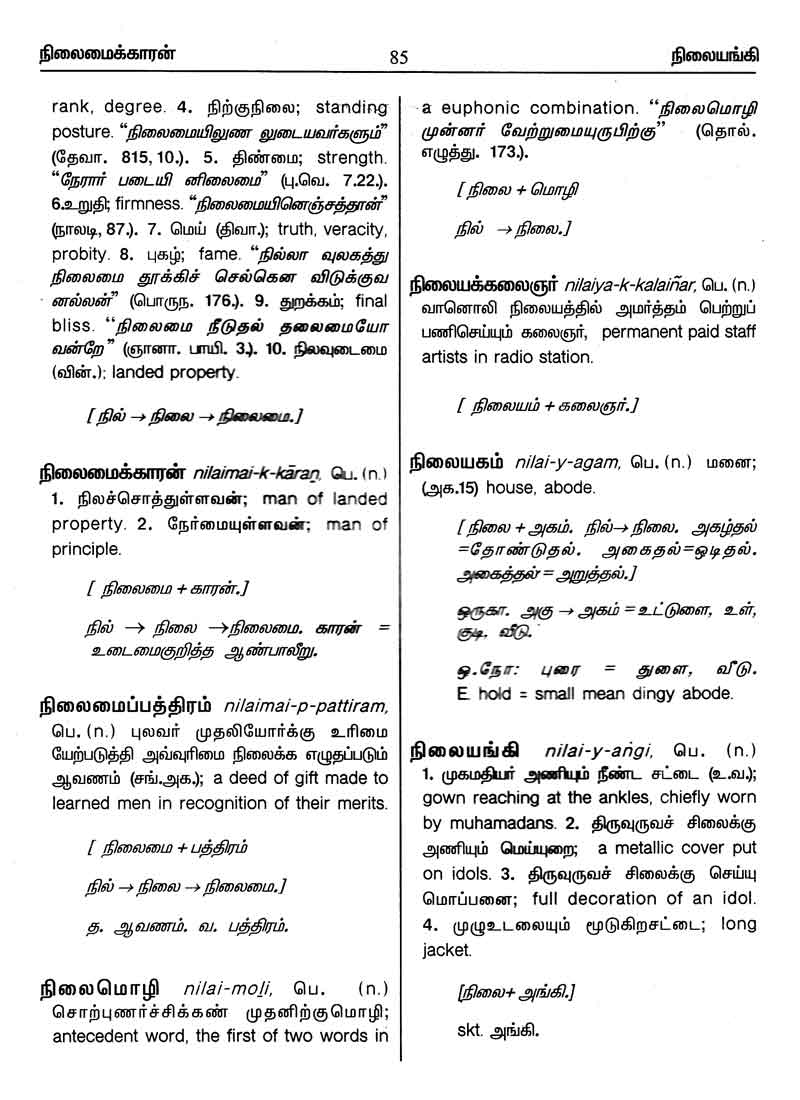 நிலைமைக்காரன்
85
நிலையங்கி
rank, degree. 4. நிற்குநிலை; standing
posture. “நிலைமையிலுண லுடையவர்களும்”
(தேவா. 815, 10.). 5. திண்மை; strength.
“நேரார் படையி னிலைமை” (பு.வெ. 7.22.).
6.உறுதி; firmness. “நிலைமையினெஞ்சத்தான்”
(நாலடி, 87.). 7. மெய் (திவா.); truth, veracity,
probity. 8. புகழ்; fame. “நில்லா வுலகத்து
நிலைமை தூக்கிச் செல்கென விடுக்குவ
னல்லன்” (பொருந. 176.). 9. துறக்கம்; final
bliss. “நிலைமை நீடுதல் தலைமையோ
வன்றே” (ஞானா. பாயி. 3.). 10. நிலவுடைமை
(வின்.); landed property.
[ நில் → நிலை → நிலைமை.]
நிலைமைக்காரன் nilaimai-k-kāraṉ, பெ. (n.)
1. நிலச்சொத்துள்ளவன்; man of landed
property. 2. நேர்மையுள்ளவன்; man of
principle.
[ நிலைமை + காரன்.]
நில் → நிலை →நிலைமை. காரன் =
உடைமைகுறித்த ஆண்பாலீறு.
நிலைமைப்பத்திரம் nilaimai-p-pattiram,
பெ. (n.) புலவர் முதலியோர்க்கு உரிமை
யேற்படுத்தி அவ்வுரிமை நிலைக்க எழுதப்படும்
ஆவணம் (சங்.அக.); a deed of gift made to
learned men in recognition of their merits.
[ நிலைமை + பத்திரம்
நில் → நிலை → நிலைமை.]
த. ஆவணம். வ. பத்திரம்.
நிலைமொழி nilai-moḻi, பெ. (n.)
சொற்புணர்ச்சிக்கண் முதனிற்குமொழி;
antecedent word, the first of two words in
a euphonic combination. “நிலைமொழி
முன்னர் வேற்றுமையுருபிற்கு” (தொல்.
எழுத்து. 173.).
[ நிலை + மொழி
நில் → நிலை.]
நிலையக்கலைஞர் nilaiya-k-kalaiñar, பெ. (n.)
வானொலி நிலையத்தில் அமர்த்தம் பெற்றுப்
பணிசெய்யும் கலைஞர், permanent paid staff
artists in radio station.
[ நிலையம் + கலைஞர்.]
நிலையகம் nilai-y-agam, பெ. (n.) மனை;
(அக.15) house, abode.
[ நிலை + அகம். நில்→ நிலை. அகழ்தல்
=தோண்டுதல். அகைதல்=ஒடிதல்.
அகைத்தல் = அறுத்தல்.]
ஒருகா. அகு → அகம் = உட்டுளை, உள்,
குடி, வீடு.
ஒ.நோ: புரை = துளை, வீடு.
E. hold = small mean dingy abode.
நிலையங்கி nilai-y-aṅgi, பெ. (n.)
1. முகமதியர் அணியும் நீண்ட சட்டை (உ.வ.);
gown reaching at the ankles, chiefly worn
by muhamadans. 2. திருவுருவச் சிலைக்கு
அணியும் மெய்யுறை; a metallic cover put
on idols. 3. திருவுருவச் சிலைக்கு செய்யு
மொப்பனை; full decoration of an idol.
4. முழுஉடலையும் மூடுகிறசட்டை; long
jacket.
[நிலை+ அங்கி.]
skt. அங்கி.